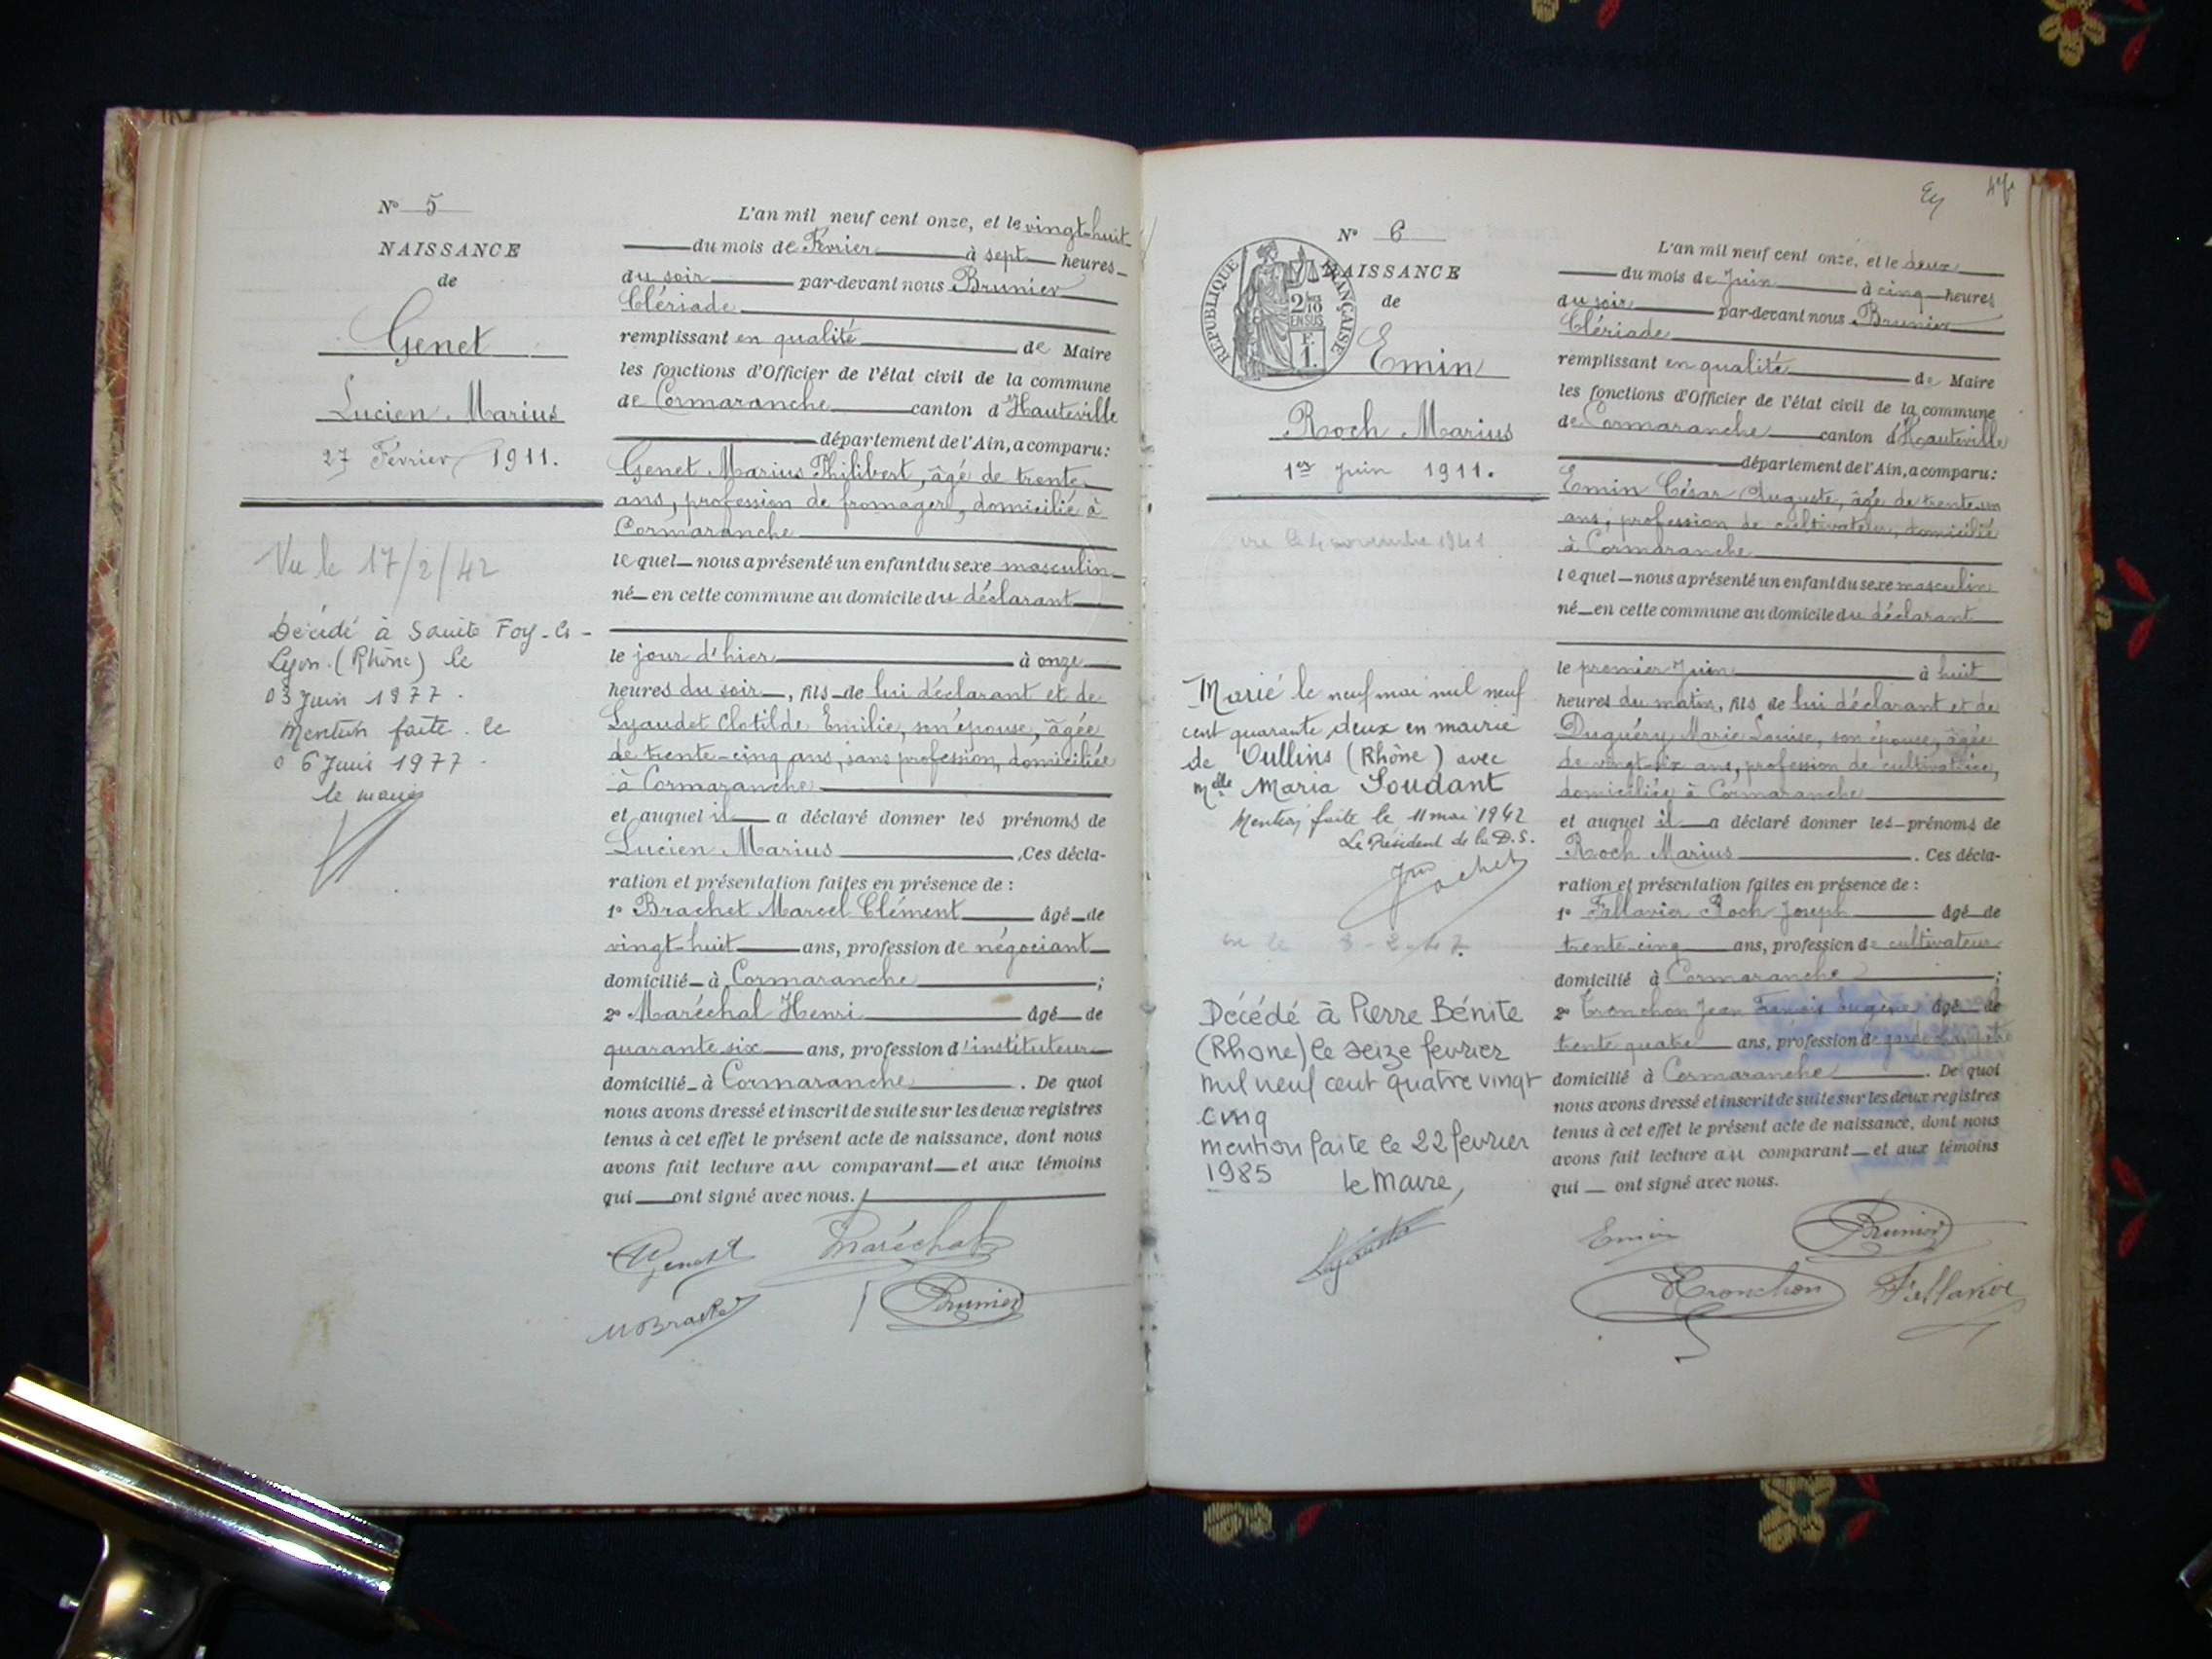 N° 5
NAISSANCE
de
Genet
Lucien Marius
27 Février 1911.
Vu le 17/2/42
Décédé à Sainte Foy-les-
Lyon (Rhône) le
03 Juin 1977.
Mention faite le
06 Juin 1977.
le maire
L'an mil neuf cent onze, et le vingt-huit
du mois de Février à sept heures
du soir par-devant nous Brunier
Clériade
remplissant en qualité de Maire
les fonctions d'Officier de l'état civil de la commune
de Cormaranche canton d'Hauteville
département de l'Ain, a comparu:
Genet Marius Philibert, âgé de trente
ans, profession de fromager, domicilié à
Cormaranche
lequel nous a présenté un enfant du sexe masculin
né en cette commune au domicile du déclarant
le jour d'hier à onze
heures du soir, fils de lui déclarant et de
Lyaudet Clotilde Emilie, son épouse, âgée
de trente-cinq ans, sans profession, domiciliée
à Cormaranche
et auquel il a déclaré donner les prénoms de
Lucien Marius. Ces décla-
ration et présentation faites en présence de :
1° Brachet Marcel Clément âgé de
vingt-huit ans, profession de négociant
domicilié à Cormaranche ;
2° Maréchal Henri âgé de
quarante six ans, profession d'instituteur
domicilié à Cormaranche. De quoi
nous avons dressé et inscrit de suite sur les deux registres
tenus à cet effet le présent acte de naissance, dont nous
avons fait lecture au comparant et aux témoins
qui ont signé avec nous.
Genet Maréchal
M Brachet Brunier
N° 6
RÉPUBLIQUE FRANÇAISE
2/10
EN SUS
F.
1.
NAISSANCE
de
Emin
Roch Marius
1er Juin 1911.
vu le 4 novembre 1941
Marié le neuf mai mil neuf
cent quarante deux en mairie
de Oullins (Rhône) avec
Melle Maria Soudant
Mention faite le 11 mai 1942
Le Président de la D.S.
vu le 8-2-47.
Décédé à Pierre Bénite
(Rhone) le seize fevrier
mil neuf cent quatre vingt
cinq
mention faite le 22 fevrier
1985 le Maire,
L'an mil neuf cent onze, et le deux
du mois de Juin à cinq heures
du soir par-devant nous Brunier
Clériade
remplissant en qualité de Maire
les fonctions d'Officier de l'état civil de la commune
de Cormaranche canton d'Hauteville
département de l'Ain, a comparu:
Emin César Auguste, âgé de trente-un
ans, profession de cultivateur, domicilié
à Cormaranche
lequel nous a présenté un enfant du sexe masculin
né en cette commune au domicile du déclarant
le premier Juin à huit
heures du matin, fils de lui déclarant et de
Duguéry Marie Louise, son épouse, âgée
de vingt-six ans, profession de cultivatrice,
domiciliée à Cormaranche
et auquel il a déclaré donner les prénoms de
Roch Marius. Ces décla-
ration et présentation faites en présence de :
1° Fallavier Roch Joseph âgé de
trente-cinq ans, profession de cultivateur
domicilié à Cormaranche ;
2° Tronchon Jean François Eugène âgé de
trente quatre ans, profession de garde
domicilié à Cormaranche. De quoi
nous avons dressé et inscrit de suite sur les deux registres
tenus à cet effet le présent acte de naissance, dont nous
avons fait lecture au comparant et aux témoins
qui ont signé avec nous.
Emin Brunier
Tronchon Fallavier